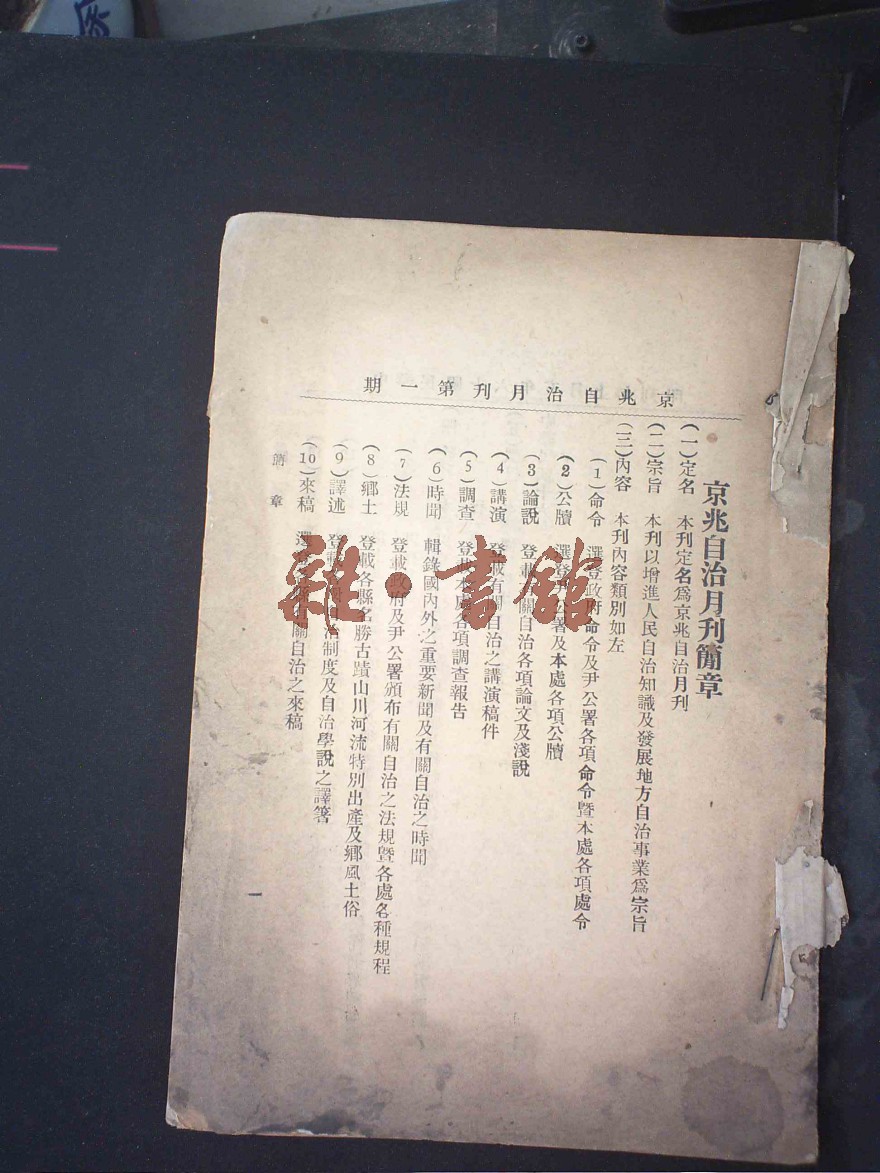 京兆自治月刊第一期
京兆自治月刊簡章
(一)定名 本刊定名爲京兆自治月刊
(二)宗旨 本刊以增進人民自治知識及發展地方自治事業爲宗旨
(三)內容 本刊內容類別如左
(1)命令 選登政府命令及尹公署各項命令暨本處各項處令
(2)公牘 選登尹公署及本處各項公牘
(3)論說 登載有關自治各項論文及淺說
(4)講演 登載有關自治之講演稿件
(5)調查 登載本處各項調查報告
(6)時聞 輯錄國內外之重要新聞及有關自治之時聞
(7)法規 登載政府及尹公署頒布有關自治之法規暨各處各種規程
(8)鄉土 登載各縣名勝古蹟山川河流特別出產及鄉風土俗
(9)譯述 登載自治制度及自治學說之譯箸
(10)來稿 選關自治之來稿
簡章
一
雜·書館